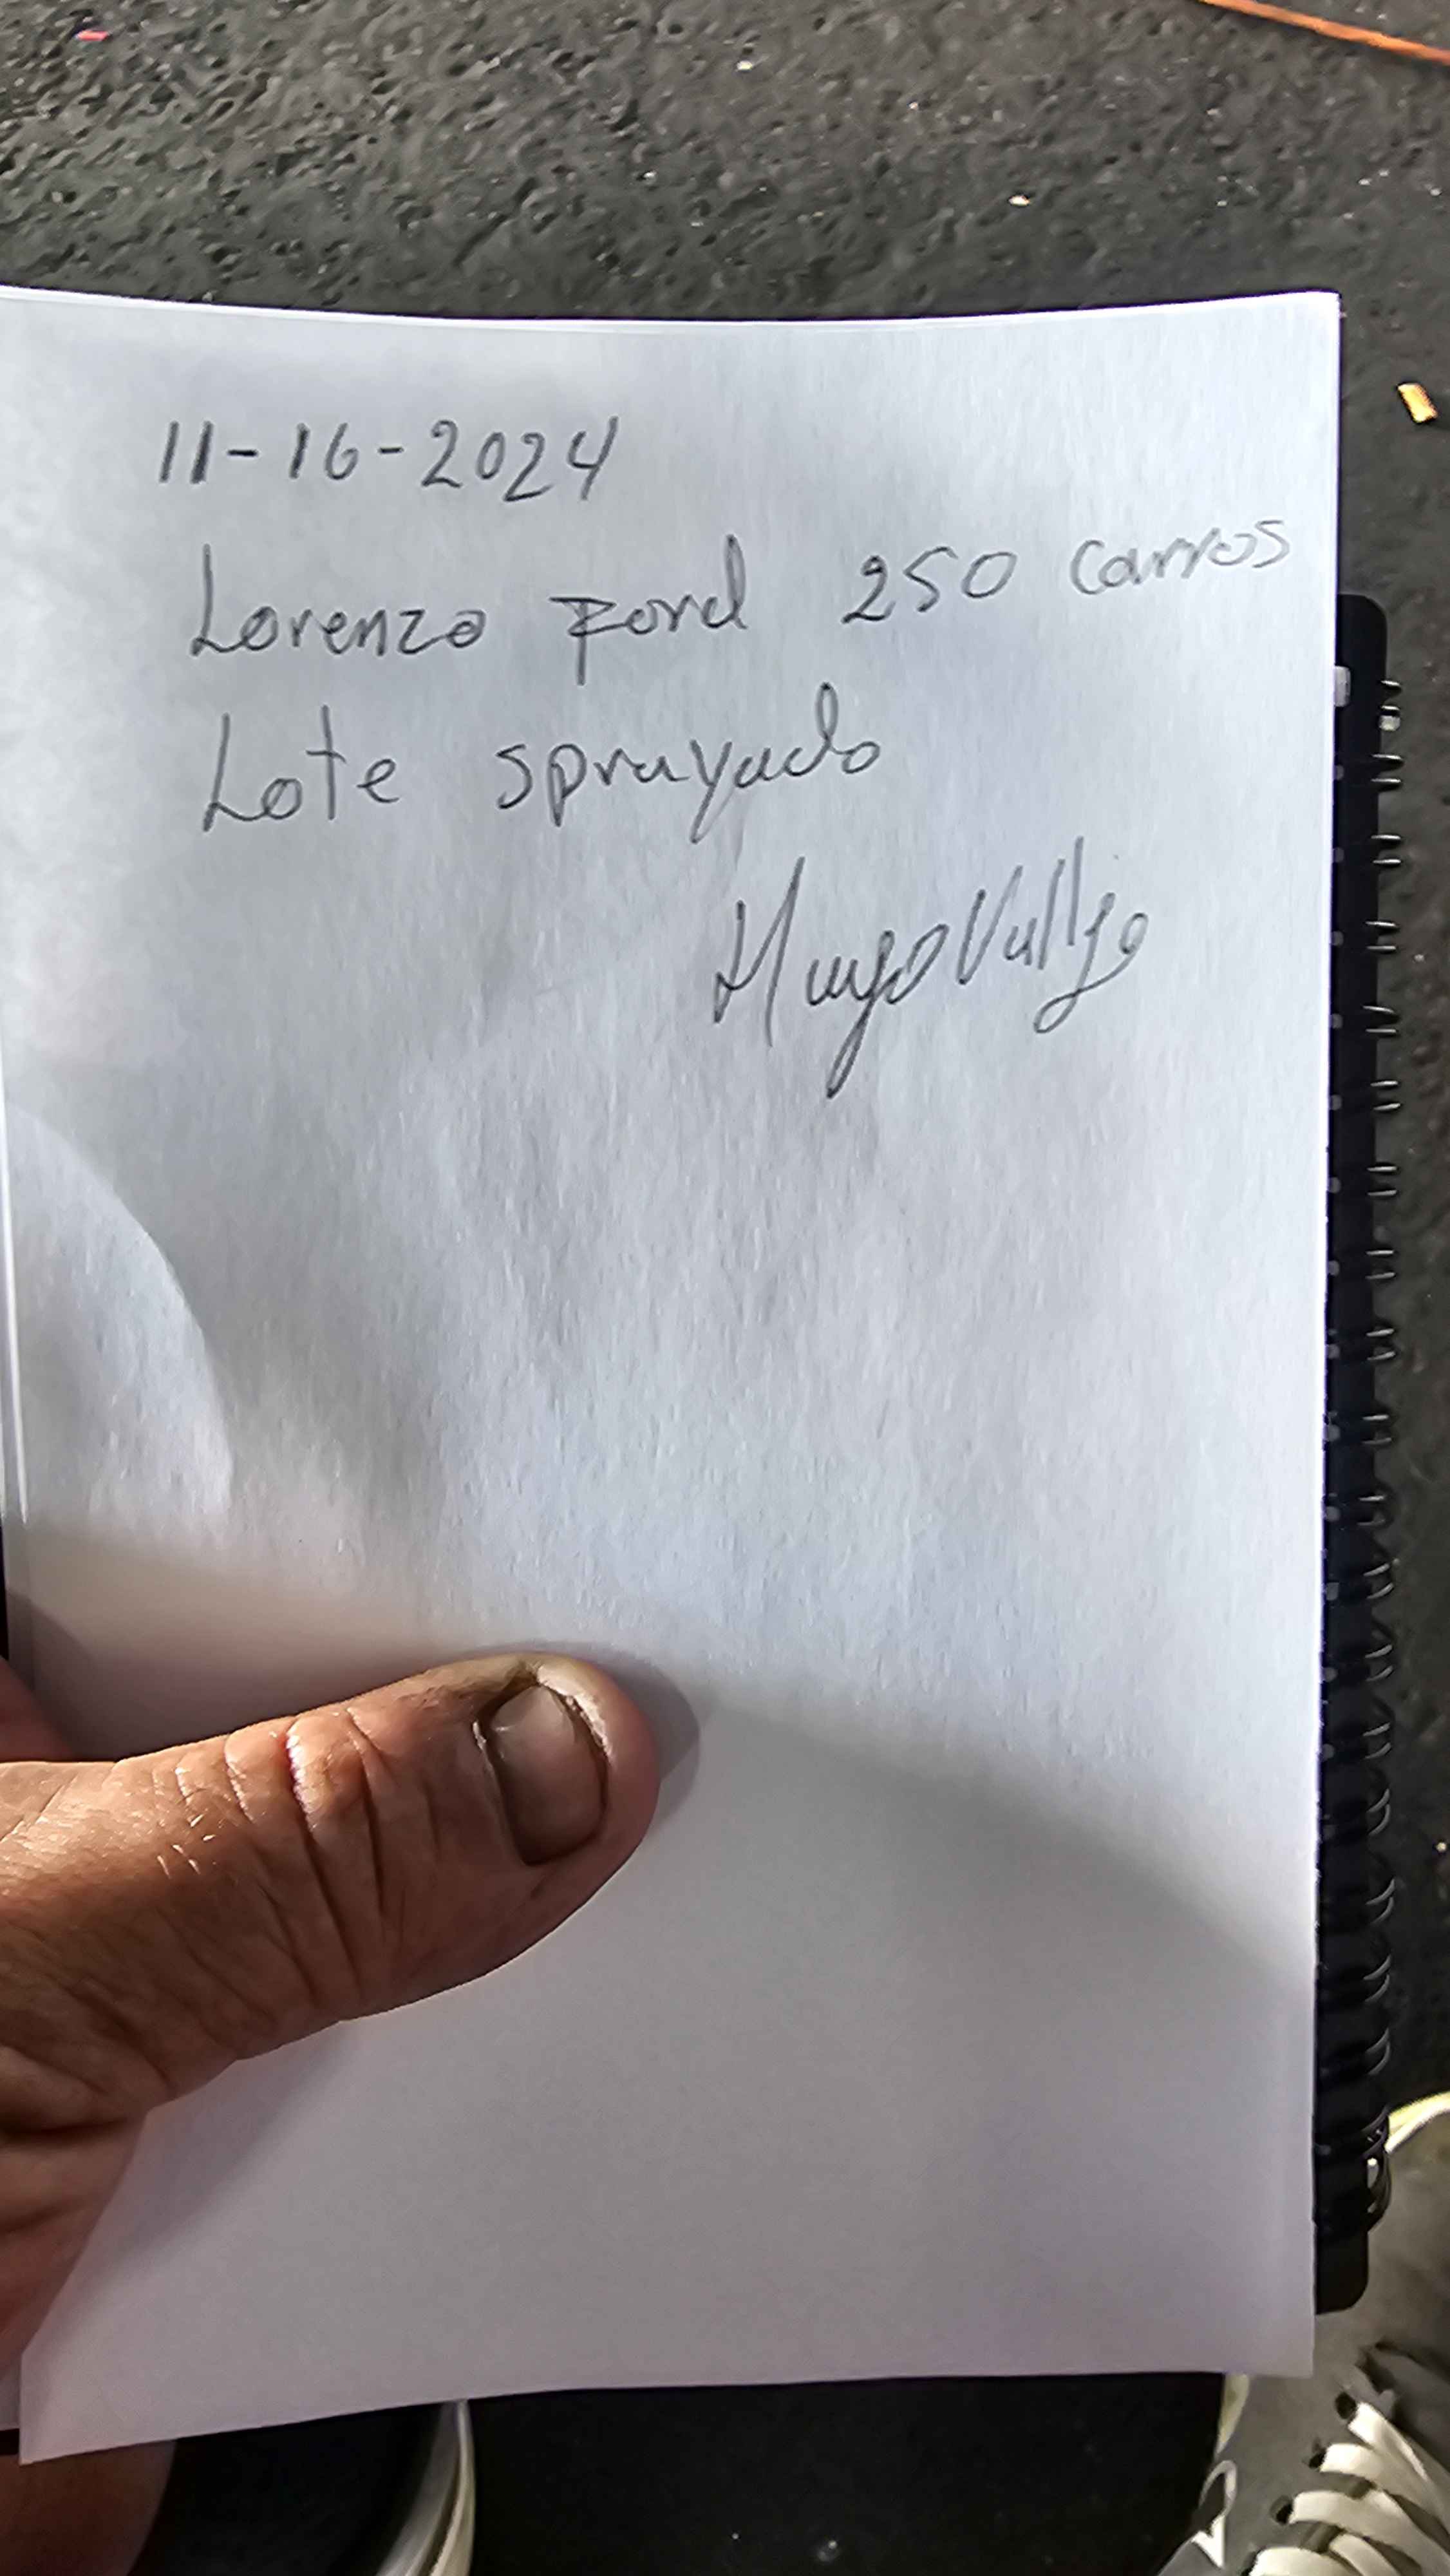 11-16-2024
Lorenzo Ford 250 carros
Lote sprayado
Hugo